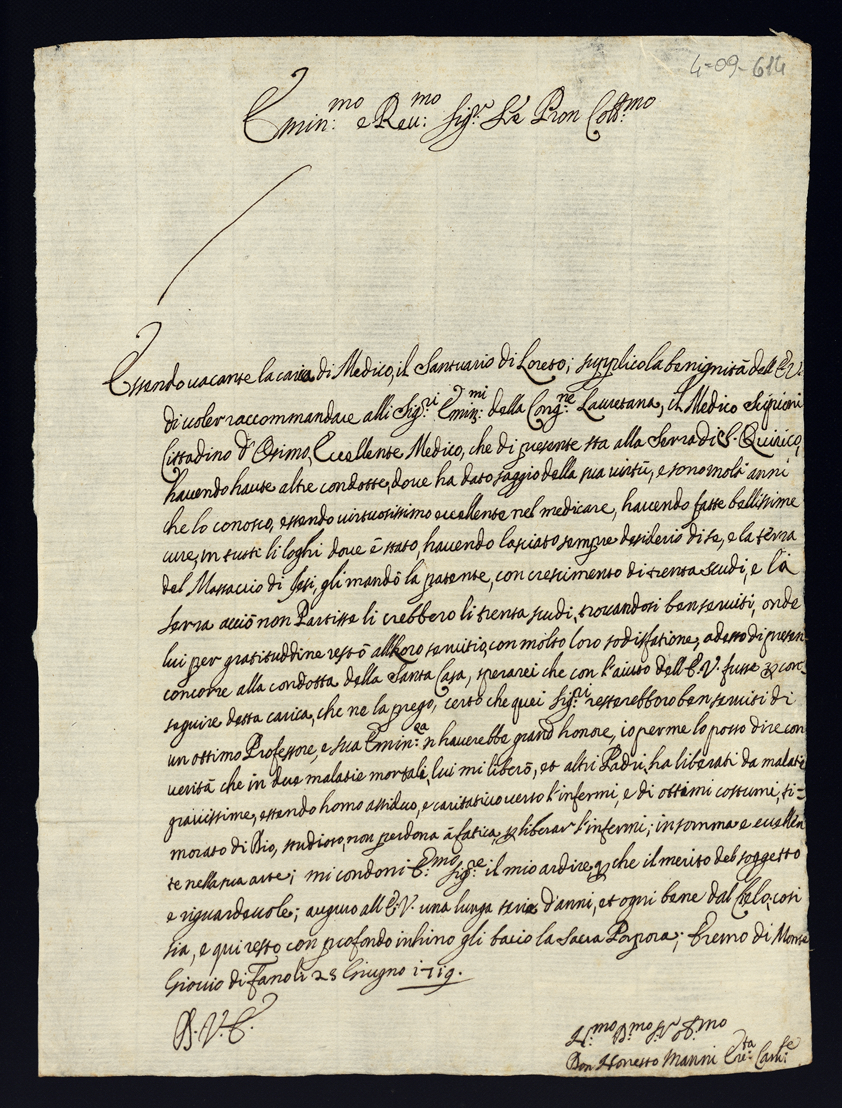 4-09-614
Emin:mo e Reu:mo Sigr. Pron Coll:mo
Essendo uacante la carica di Medico, il Santuario di Loreto; supplico la benignità dell'E.V.
di uoler raccommandare alli Sig:ri Emin:mi della Cong:ne Lauretana, il Medico
Cittadino d'Osimo, Eccellente Medico, che di presente sta alla Serra di S. Quirico,
hauendo haute altre condotte, doue ha dato saggio della sua virtù, e sono molti anni
che lo conosco, essendo uirtuosissimo eccellente nel medicare, hauendo fatte bellissime
cure, in tutti li loghi doue è stato, hauendo lasciato sempre desiderio di se, e la terra
del Massaccio di Jesi, gli mandò la patente, con crescimento di trenta scudi, e la
Serra acciò non Partisse li crebbero li trenta scudi, trouandosi ben seruiti, onde
lui per gratituddine restò all loro seruitio, con molto loro sodisfatione, adesso di presen-
concorre alla condotta della Santa Casa, sperarei che con l'aiuto dell'E.V. fusse con-
seguire detta carica, che ne la prego, certo che quei Sig:ri resterebbero ben seruiti di
un ottimo Professore, e sua Emin:za n'hauerebbe grand honore, io per me lo posso dire con
uerità che in due malatie mortali, lui mi liberò, et altri Padri, ha liberati da malatie
grauissime, essendo homo assiduo, e caritatiuo uerso l'infermi, e di ottimi costumi, ti=
morato di Dio, studioso, non perdona à fatica, p liberar l'infermi; in somma e eccellen
te nella sua arte; mi condoni E:mo Sig:re il mio ardire, p che il merito del soggetto
e riguardeuole; auguro all'E.V. una lunga serie d'anni, et ogni bene dal Cielo, così
sia, e qui resto con profondo inchino gli bacio la Sacra Porpora; Eremo di Monte
Giouio di Fano li 28 Giugno 1719.
D. V. E.
H:mo D:mo
Don Honesto Manni